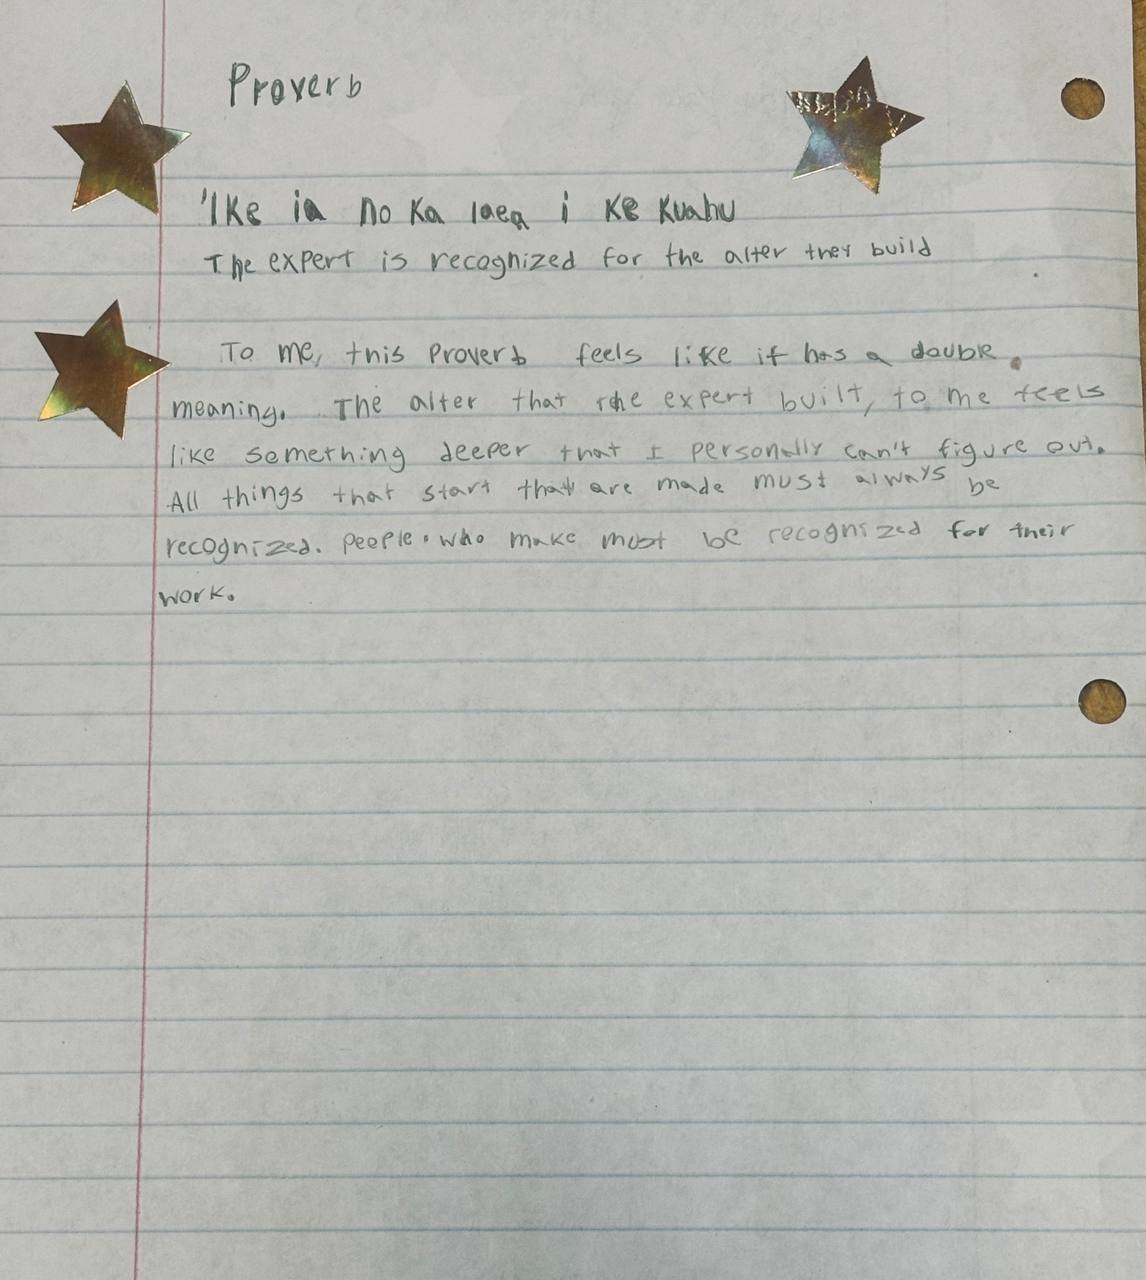 Proverb
'Ike ia no ka laea i ke Kuahu
The expert is recognized for the alter they build
To me, this Proverb feels like it has a double
meaning. The alter that the expert built, to me feels
like something deeper that I personally can't figure out.
All things that start that are made must always be
recognized. People who make must be recognized for their
work.